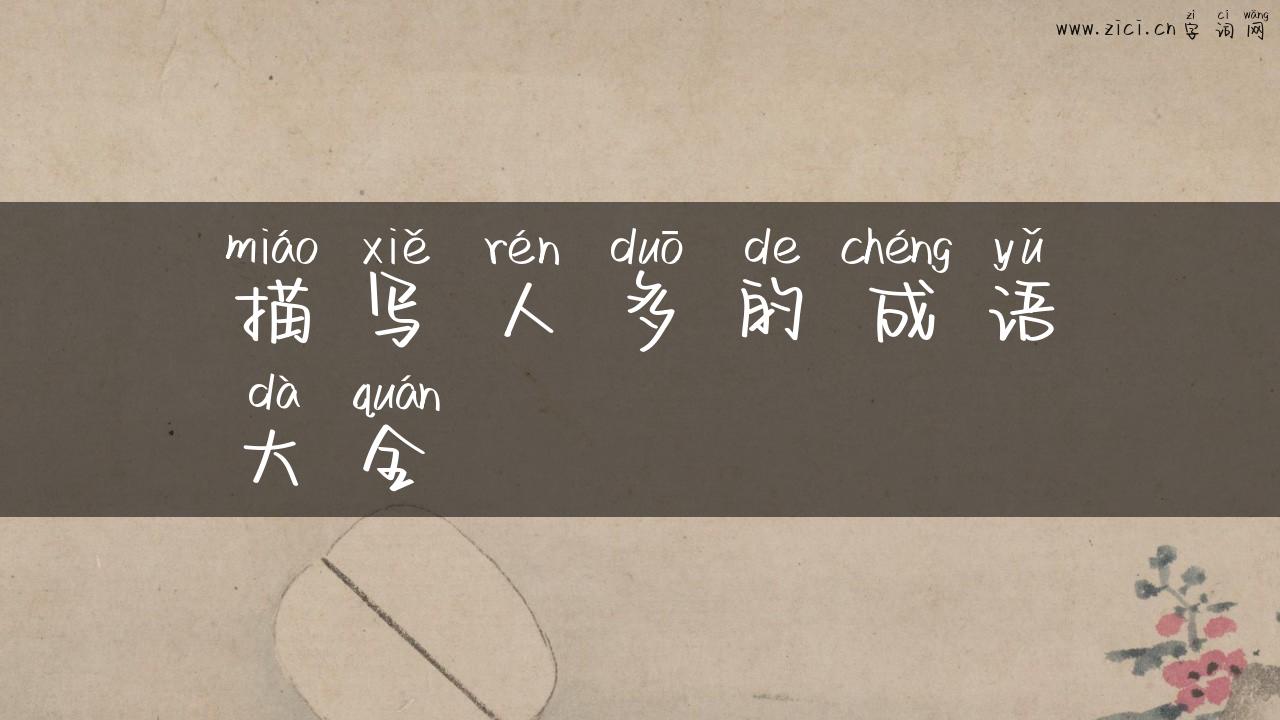 zì cí wǎng
www.zici.cn 字词网
miáo xiě rén duō de chéng yǔ
描写人多的成语
dà quán
大全